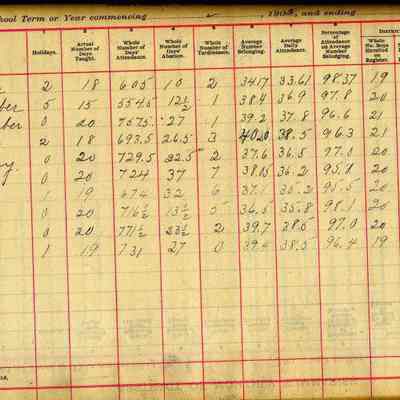 chool Term or Year commencing , 190 , and ending
Holidays. Actual Number of Days Taught. Whole Number of Days' Attendance. Whole Number of Days' Absence. Whole Number of Tardinesses. Average Number Belonging. Average Daily Attendance. Percentage of Attendance on Average Number Belonging. Whole No. Boys Enrolled in Register.
2 18 605 10 2 34.17 33.61 98.37 19
ber 5 15 554.5 12½ 1 38.4 36.9 97.8 20
ber 0 20 757.5 27 1 39.2 37.8 96.6 21
2 18 693.5 26.5 3 40.0 38.5 96.3 21
0 20 729.5 22.5 2 37.6 36.5 97.0 20
0 20 724 37 7 36.2 20
1 19 674 32 6 37.1 35.2 95.5 20
0 20 716½ 13½ 5 36.5 35.8 98.1 20
0 20 771½ 23½ 2 39.7 38.5 97.0 20
1 19 731 27 0 39.4 38.5 96.4 19